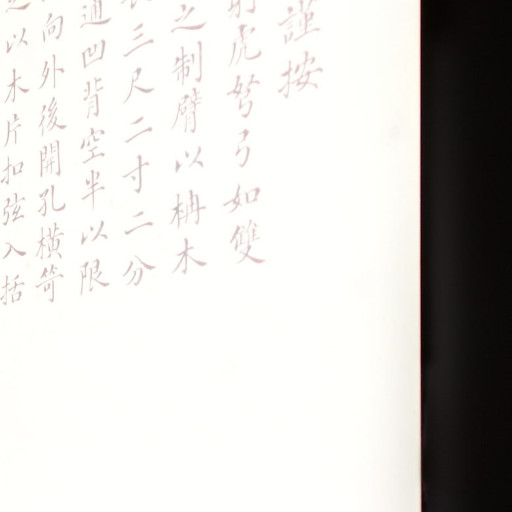 謹按
射虎弩弓如雙
之制臂以柟木
三尺二寸二分
通凹背空半以限
向外後開孔橫笴
之以木片扣弦入括